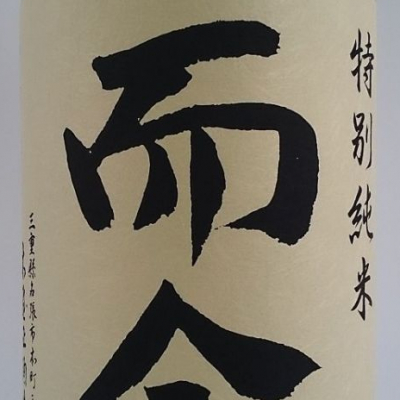 特別純米
而今
三重縣名張市本町